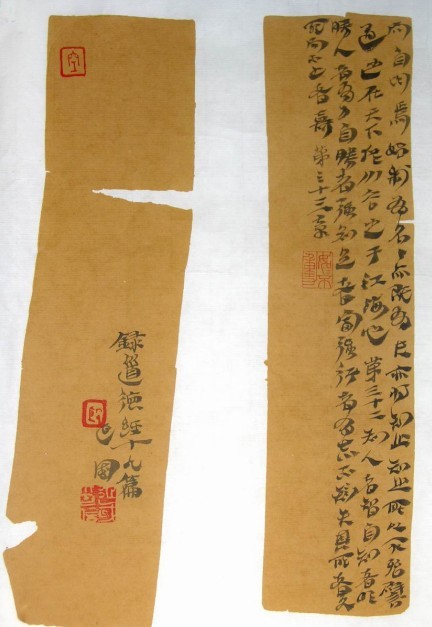 而自均焉始制有名々亦既有夫亦将知止知止所以不殆譬
道之在天下猶川谷之于江海也第三十二知人者智自知者明
勝人者有力自勝者强知足者富强行者有志不失其所者久
死而不亡者壽第三十三章
録道德經十九篇
國